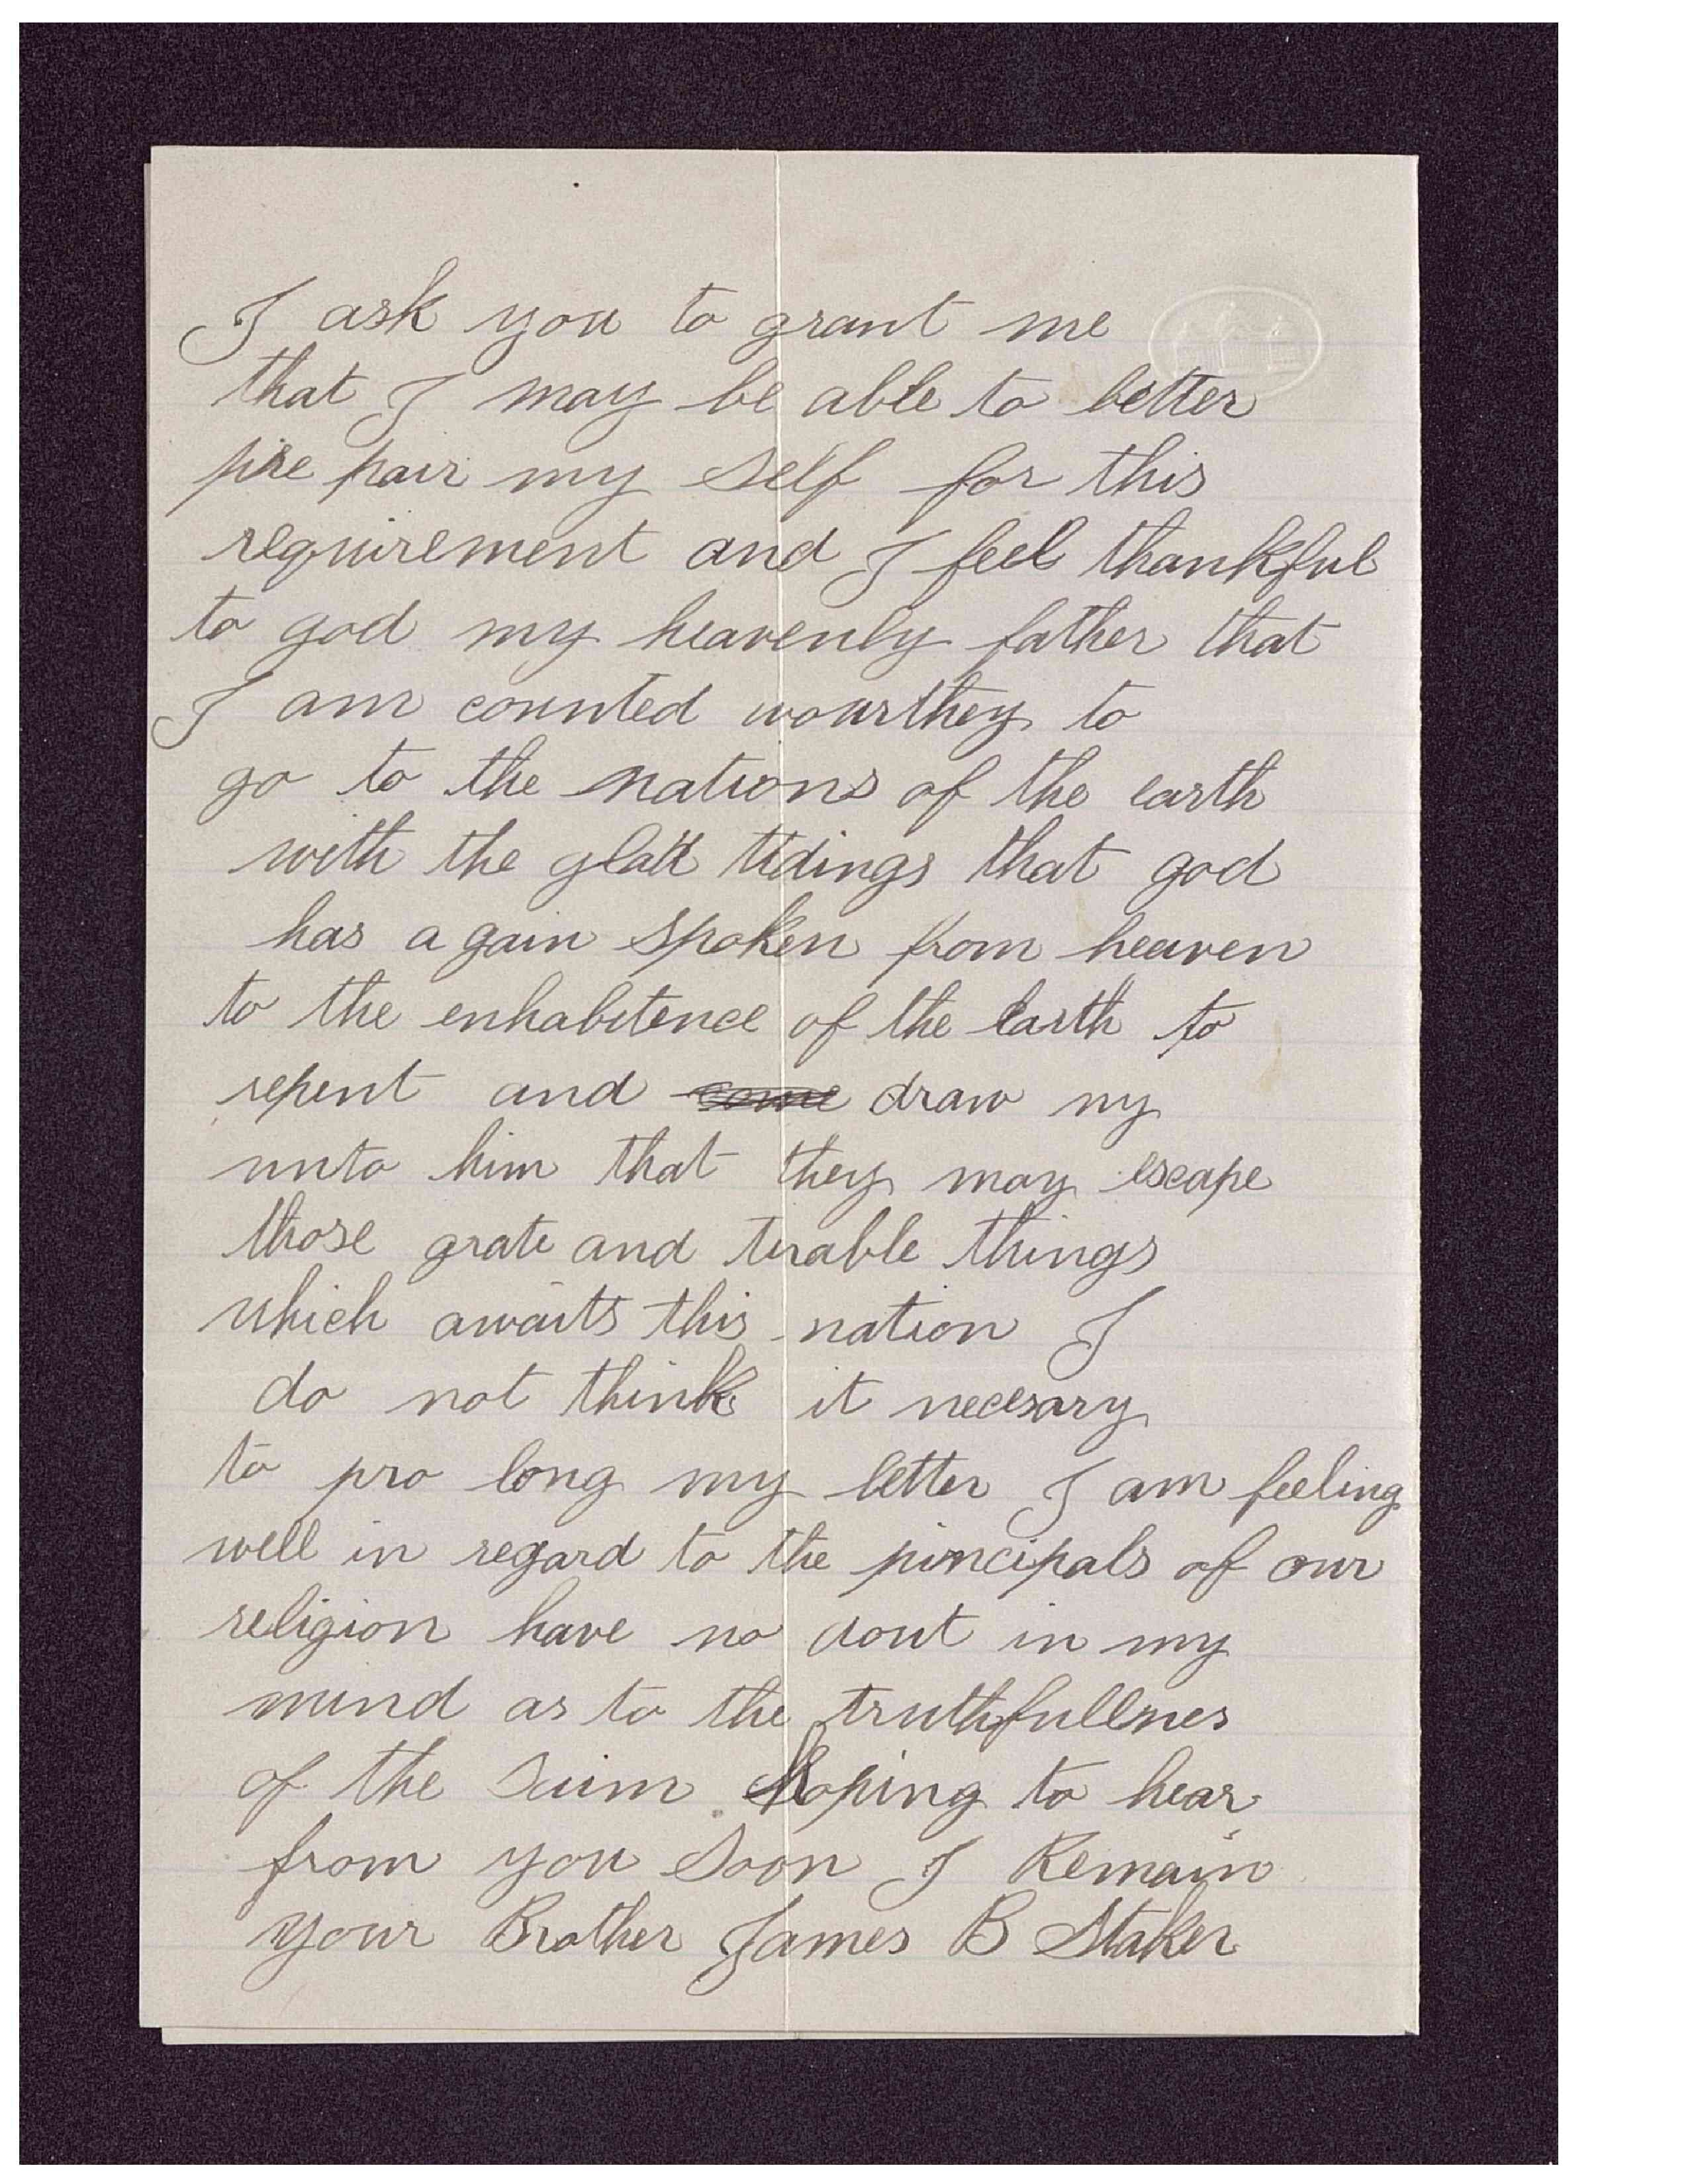 I ask you to grant me
that I may be able to better
pre pair my self for this
requirement and I feel thankful
to god my heavenly father that
I am counted wourthey to
go to the nations of the earth
with the glad tidings that god
has a gain spoken from heaven
to the enhabitence of the earth to
repent and ~~come~~ draw ny
unto him that they may escape
those grate and terable things
which awaits this nation I
do not think it necesary
to pro long my letter I am feeling
well in regard to the pincipals of our
religion have no dout in my
mind as to the truthfullnes
of the saim hoping to hear
from you soon I Remain
your Brother James B Staker